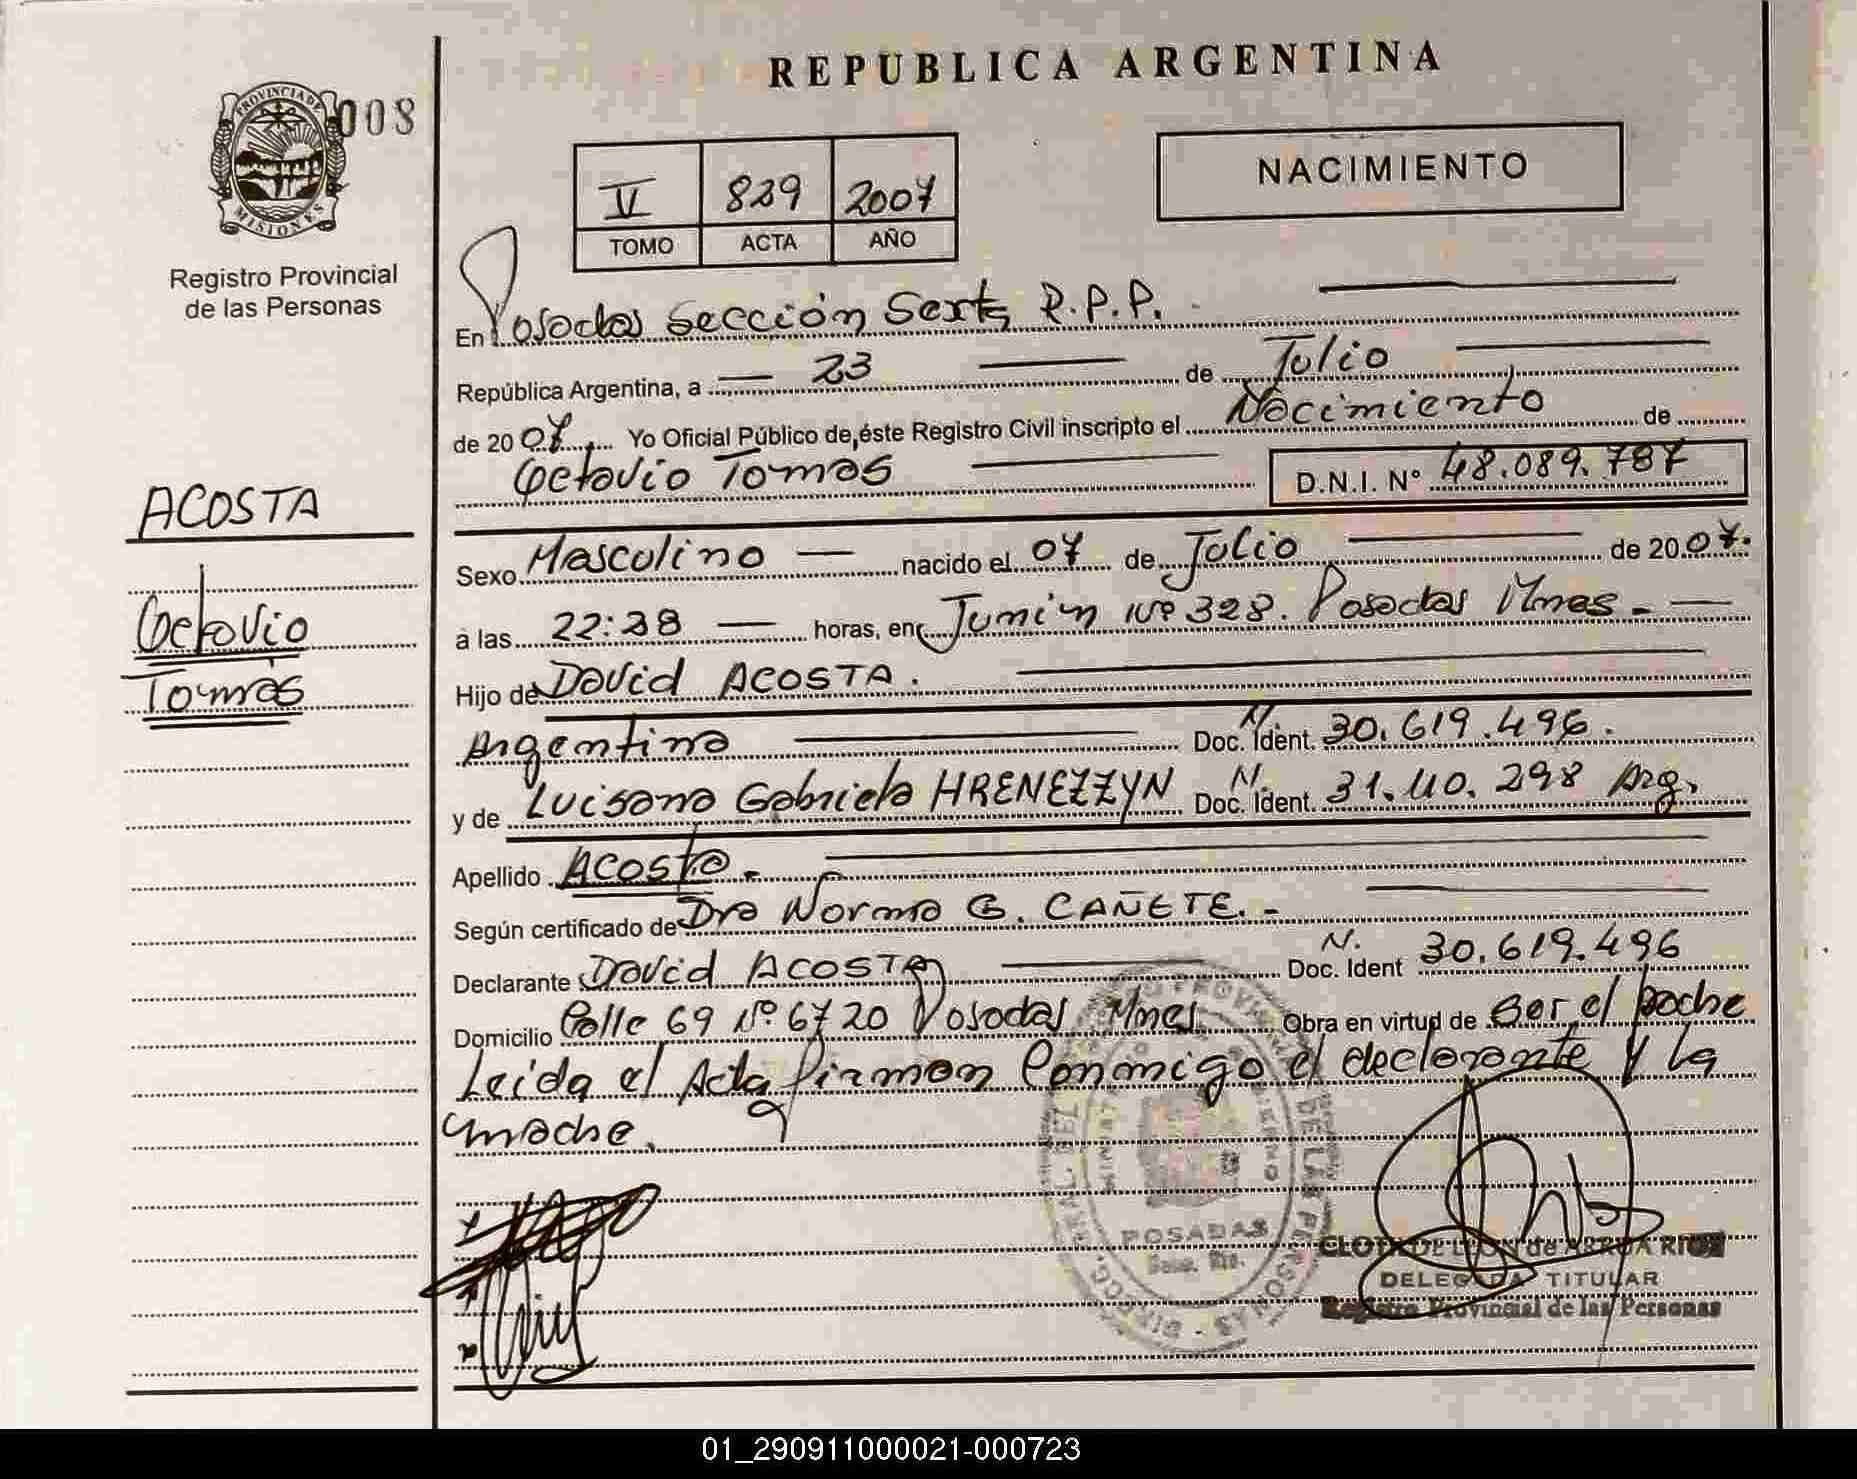 REPUBLICA ARGENTINA
PROVINCIA DE MISIONES
008
Registro Provincial
de las Personas
NACIMIENTO
V 829 2007
TOMO ACTA AÑO
En Posadas Sección Sexta R.P.P.
República Argentina, a 23 de Julio
de 2007 Yo Oficial Público de éste Registro Civil inscripto el Nacimiento de
Octavio Tomas D.N.I. Nº 48.089.787
ACOSTA
Octavio
Tomás
Sexo Masculino nacido el 07 de Julio de 2007.
a las 22:38 horas, en Junin Nº 328. Posadas Mnes.
Hijo de David ACOSTA.
Argentina N. Doc. Ident. 30.619.496.
y de Luisana Gabriela HRENEZZYN N. Doc. Ident. 31.110.298 Arg.
Apellido Acosta.
Según certificado de Dra Norma G. CAÑETE.-
Declarante David ACOSTA N. Doc. Ident 30.619.496
Domicilio Calle 69 Nº 6720 Posadas Mnes Obra en virtud de Ser el padre
Leida el Acta firman Conmigo el declarante y la
madre.
POSADAS
DE LAS PERSONAS
CLOTILDE LEON de ARRUA RIOS
DELEGADA TITULAR
Registro Provincial de las Personas
01_290911000021-000723